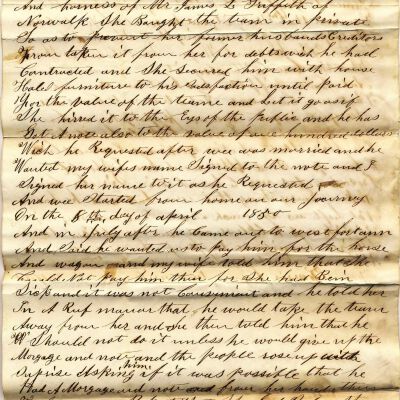 And harness of Mr James L Griffith of
Norwalk She Bought the team in private
So as to prevent her former husbands Creditors
From taken it from her for debts wich he had
Contracted and She Secured him with house
Hold furniture to his Satisfaction until paid
For the value of the teame and let it go as if
She hired it to the Eys of the publie and he has
Got A note also to the value of one hundred dollars
Wich he Requested after wee was married and he
Wanted my wifes name Signed to the note and I
Signed her name to it as he Requested
And wee Started from home on our Journey
On the 8th day of april 1850
And in July after he Came out to west
And Said he wanted us to pay him for the horse
And wagon and my wife told him that She
Could Not pay him then for She had Bein
Sick and it was not Conviniant and he told her
In A Ruf manar that he would take the team
Away from her and She then told him that he
Should not do it unless he would give up the
Morgage and note and the people rose up with
Suprise Asking him if it was possible that he
Had A Morgage and note and from her